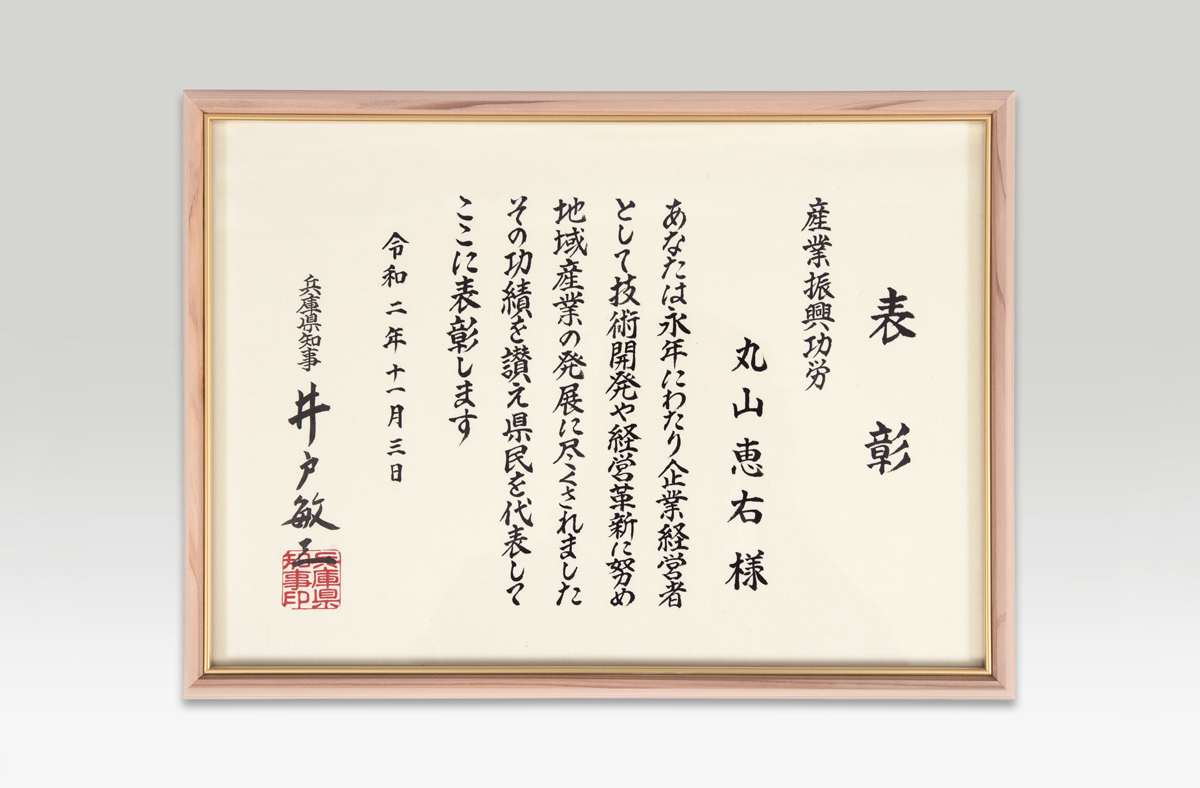 表彰
産業振興功労
丸山恵右様
あなたは永年にわたり企業経営者
として技術開発や経営革新に努め
地域産業の発展に尽くされました
その功績を讃え県民を代表して
ここに表彰します
令和二年十一月三日
兵庫県知事 井戸敏三
兵庫県
知事印